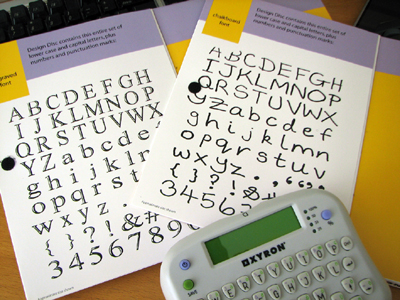 graved
font
Design Disc contains this entire set of
lower case and capital letters, plus
numbers and punctuation marks.
ABCDEFGH
IJKLMNOP
QRSTUVWX
YZabcdef
ghijklmn
opqrstuv
wxyz.
{}?!&#
3456789
chalkboard
font
Design Disc contains this entire set of
lower case and capital letters, plus
numbers and punctuation marks.
ABCDEFGH
IJKLMNOP
QRSTUVWX
YZabcdef
ghijklmn
opqrstuv
wxyz.,“”‘
{}?!&#
3456
XYRON
WERTYUIOP